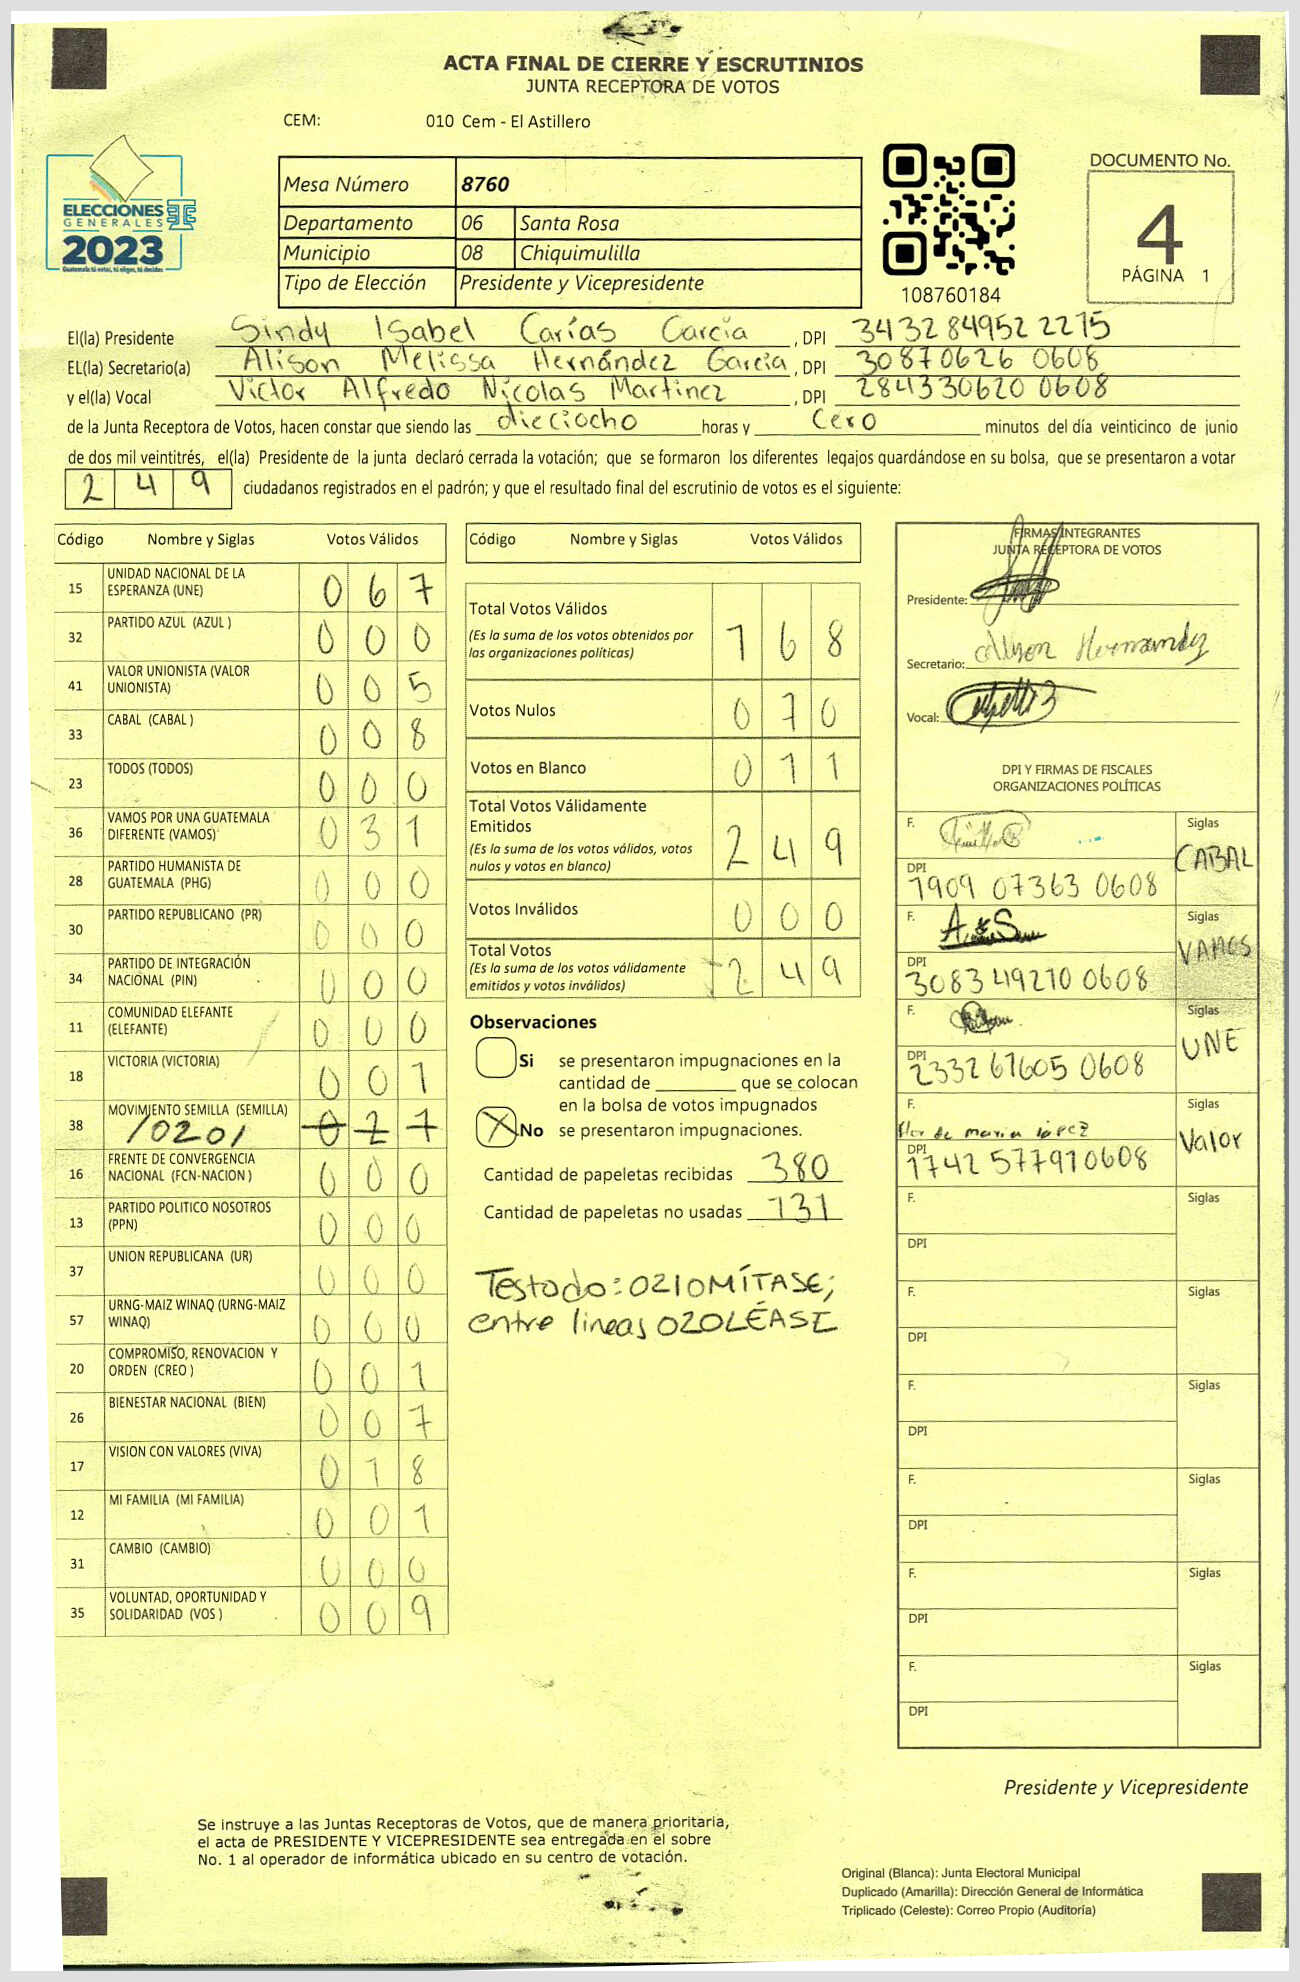 ACTA FINAL DE CIERRE Y ESCRUTINIOS
JUNTA RECEPTORA DE VOTOS
CEM: 010 Cem - El Astillero
ELECCIONES
GENERALES
2023
Guatemala tú votas, tú eliges, tú decides
Mesa Número 8760
Departamento 06 Santa Rosa
Municipio 08 Chiquimulilla
Tipo de Elección Presidente y Vicepresidente
108760184
DOCUMENTO No.
4
PÁGINA 1
El(la) Presidente Sindy Isabel Carías García, DPI 3432849522215
EL(la) Secretario(a) Alison Melissa Hernández Garcia, DPI 30870626 0608
y el(la) Vocal Victor Alfredo Nicolas Martinez, DPI 284330620 0608
de la Junta Receptora de Votos, hacen constar que siendo las dieciocho horas y Cero minutos del día veinticinco de junio
de dos mil veintitrés, el(la) Presidente de la junta declaró cerrada la votación; que se formaron los diferentes legajos quardándose en su bolsa, que se presentaron a votar
249 ciudadanos registrados en el padrón; y que el resultado final del escrutinio de votos es el siguiente:
Código Nombre y Siglas Votos Válidos
15 UNIDAD NACIONAL DE LA ESPERANZA (UNE) 067
32 PARTIDO AZUL (AZUL ) 000
41 VALOR UNIONISTA (VALOR UNIONISTA) 005
33 CABAL (CABAL ) 008
23 TODOS (TODOS) 000
36 VAMOS POR UNA GUATEMALA DIFERENTE (VAMOS) 031
28 PARTIDO HUMANISTA DE GUATEMALA (PHG) 000
30 PARTIDO REPUBLICANO (PR) 000
34 PARTIDO DE INTEGRACIÓN NACIONAL (PIN) 000
11 COMUNIDAD ELEFANTE (ELEFANTE) 000
18 VICTORIA (VICTORIA) 001
38 MOVIMIENTO SEMILLA (SEMILLA) /020/
16 FRENTE DE CONVERGENCIA NACIONAL (FCN-NACION ) 000
13 PARTIDO POLITICO NOSOTROS (PPN) 000
37 UNION REPUBLICANA (UR) 000
57 URNG-MAIZ WINAQ (URNG-MAIZ WINAQ) 000
20 COMPROMISO, RENOVACION Y ORDEN (CREO ) 001
26 BIENESTAR NACIONAL (BIEN) 007
17 VISION CON VALORES (VIVA) 018
12 MI FAMILIA (MI FAMILIA) 001
31 CAMBIO (CAMBIO) 000
35 VOLUNTAD, OPORTUNIDAD Y SOLIDARIDAD (VOS ) 009
Código Nombre y Siglas Votos Válidos
Total Votos Válidos 168
(Es la suma de los votos obtenidos por
las organizaciones políticas)
Votos Nulos 070
Votos en Blanco 011
Total Votos Válidamente
Emitidos 249
(Es la suma de los votos válidos, votos
nulos y votos en blanco)
Votos Inválidos 000
Total Votos 249
(Es la suma de los votos válidamente
emitidos y votos inválidos)
Observaciones
Si se presentaron impugnaciones en la
cantidad de ________ que se colocan
en la bolsa de votos impugnados
X No se presentaron impugnaciones.
Cantidad de papeletas recibidas 380
Cantidad de papeletas no usadas 131
Testado: 021OMÍTASE;
entre lineas 020LÉASE
FIRMAS INTEGRANTES
JUNTA RECEPTORA DE VOTOS
Presidente:
Secretario: Alison Hernandez
Vocal:
DPI Y FIRMAS DE FISCALES
ORGANIZACIONES POLÍTICAS
F. Siglas
CABAL
DPI
1909 07363 0608
F. Siglas
VAMOS
DPI
3083 49210 0608
F. Siglas
UNE
DPI
2332 67605 0608
F. Siglas
Flor de maria lópez Valor
DPI
1742 57791 0608
F. Siglas
DPI
F. Siglas
DPI
F. Siglas
DPI
F. Siglas
DPI
F. Siglas
DPI
F. Siglas
DPI
Presidente y Vicepresidente
Se instruye a las Juntas Receptoras de Votos, que de manera prioritaria,
el acta de PRESIDENTE Y VICEPRESIDENTE sea entregada en el sobre
No. 1 al operador de informática ubicado en su centro de votación.
Original (Blanca): Junta Electoral Municipal
Duplicado (Amarilla): Dirección General de Informática
Triplicado (Celeste): Correo Propio (Auditoría)